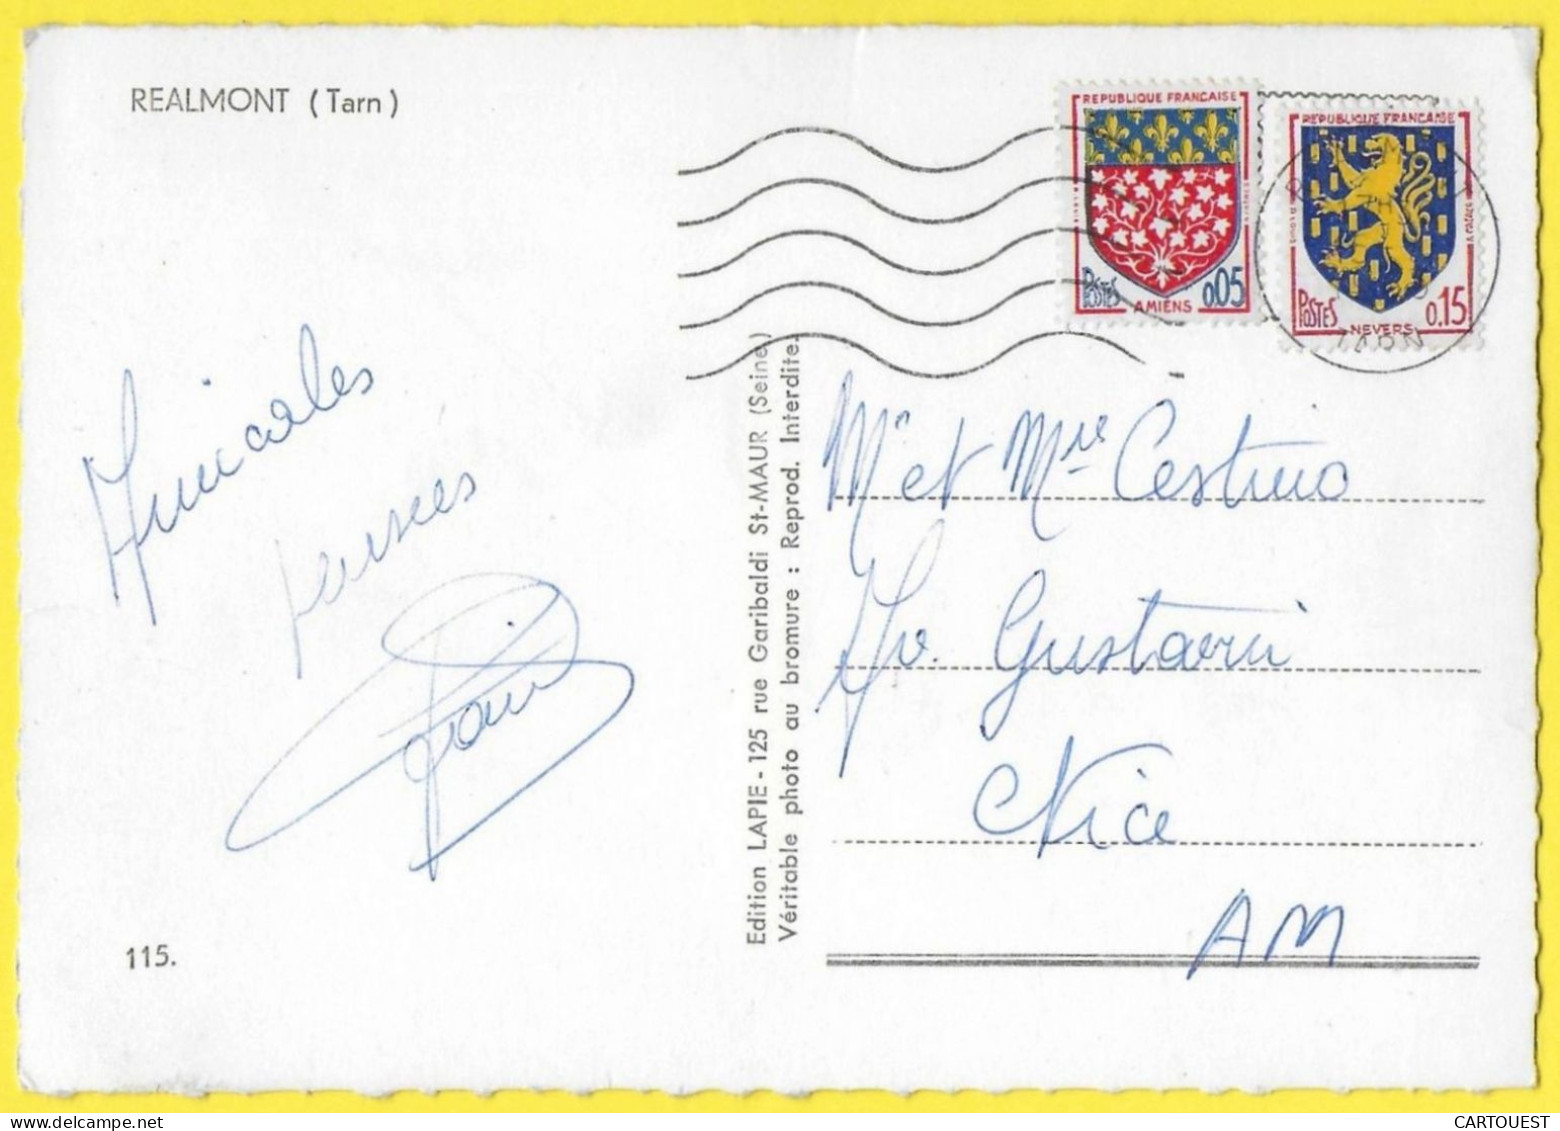 REALMONT (Tarn)
REPUBLIQUE FRANÇAISE
POSTES 0,05
AMIENS
REPUBLIQUE FRANÇAISE
POSTES 0,15
NEVERS
TARN
Amicales
pensées
Edition LAPIE - 125 rue Garibaldi St-MAUR (Seine)
Véritable photo au bromure : Reprod. Interdite.
Mr et Mme Cestino
Av. Gustavin
Nice
AM
115.
delcampe.net
CARTOUEST